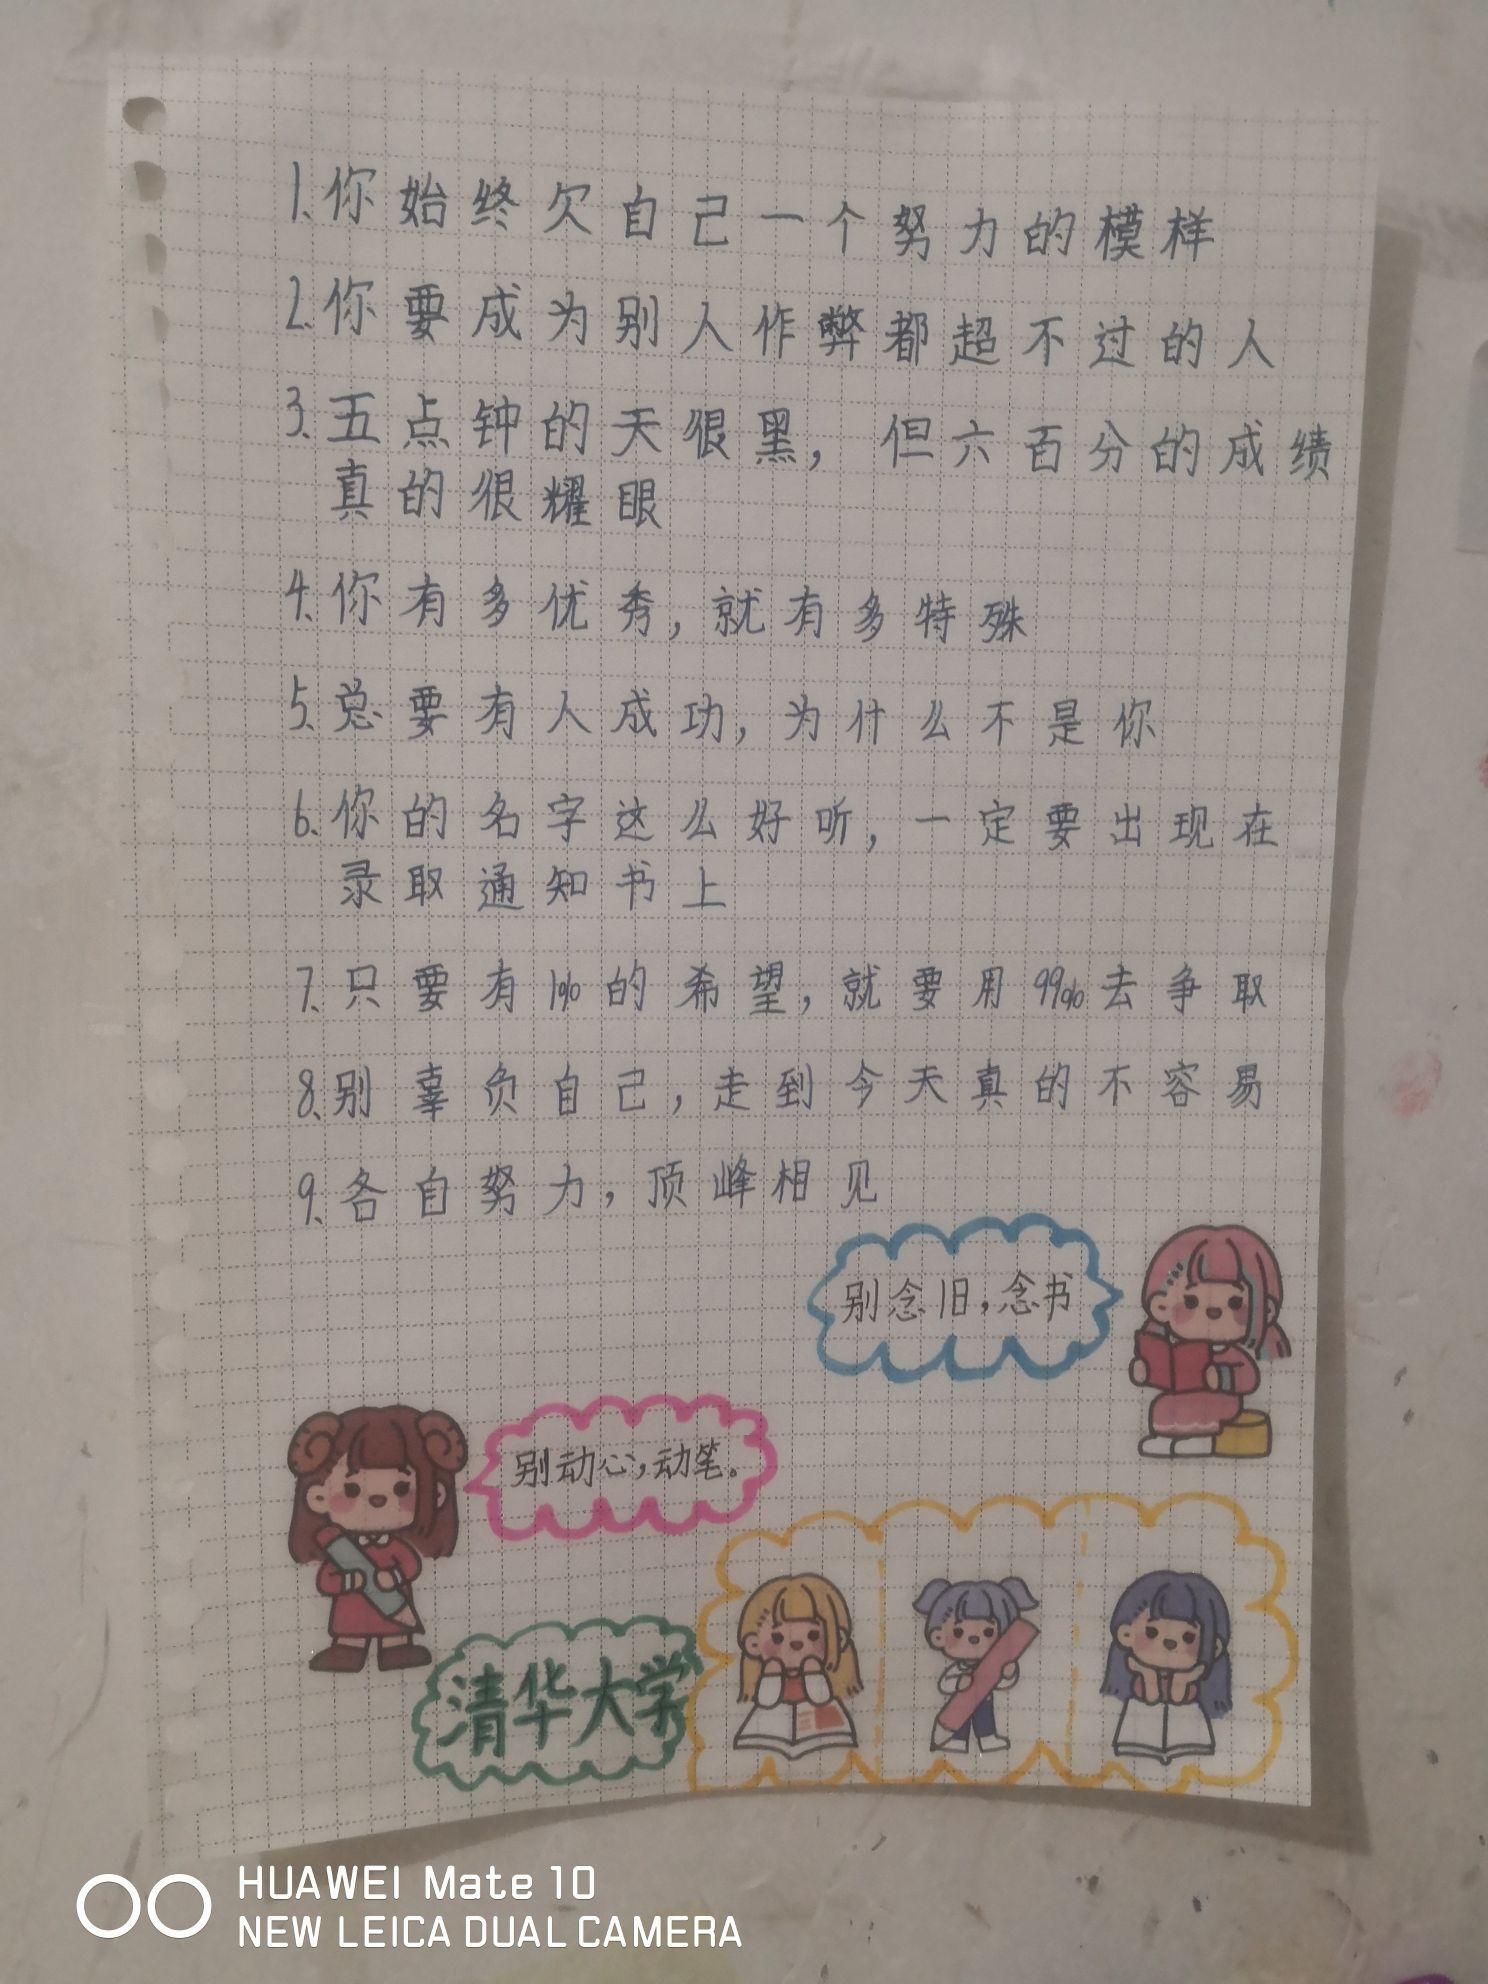 1.你始终欠自己一个努力的模样
2.你要成为别人作弊都超不过的人
3.五点钟的天很黑，但六百分的成绩
真的很耀眼
4.你有多优秀，就有多特殊
5.总要有人成功，为什么不是你
6.你的名字这么好听，一定要出现在
录取通知书上
7.只要有1%的希望，就要用99%去争取
8.别辜负自己，走到今天真的不容易
9.各自努力，顶峰相见
别念旧，念书
别动心，动笔。
清华大学
HUAWEI Mate 10
NEW LEICA DUAL CAMERA